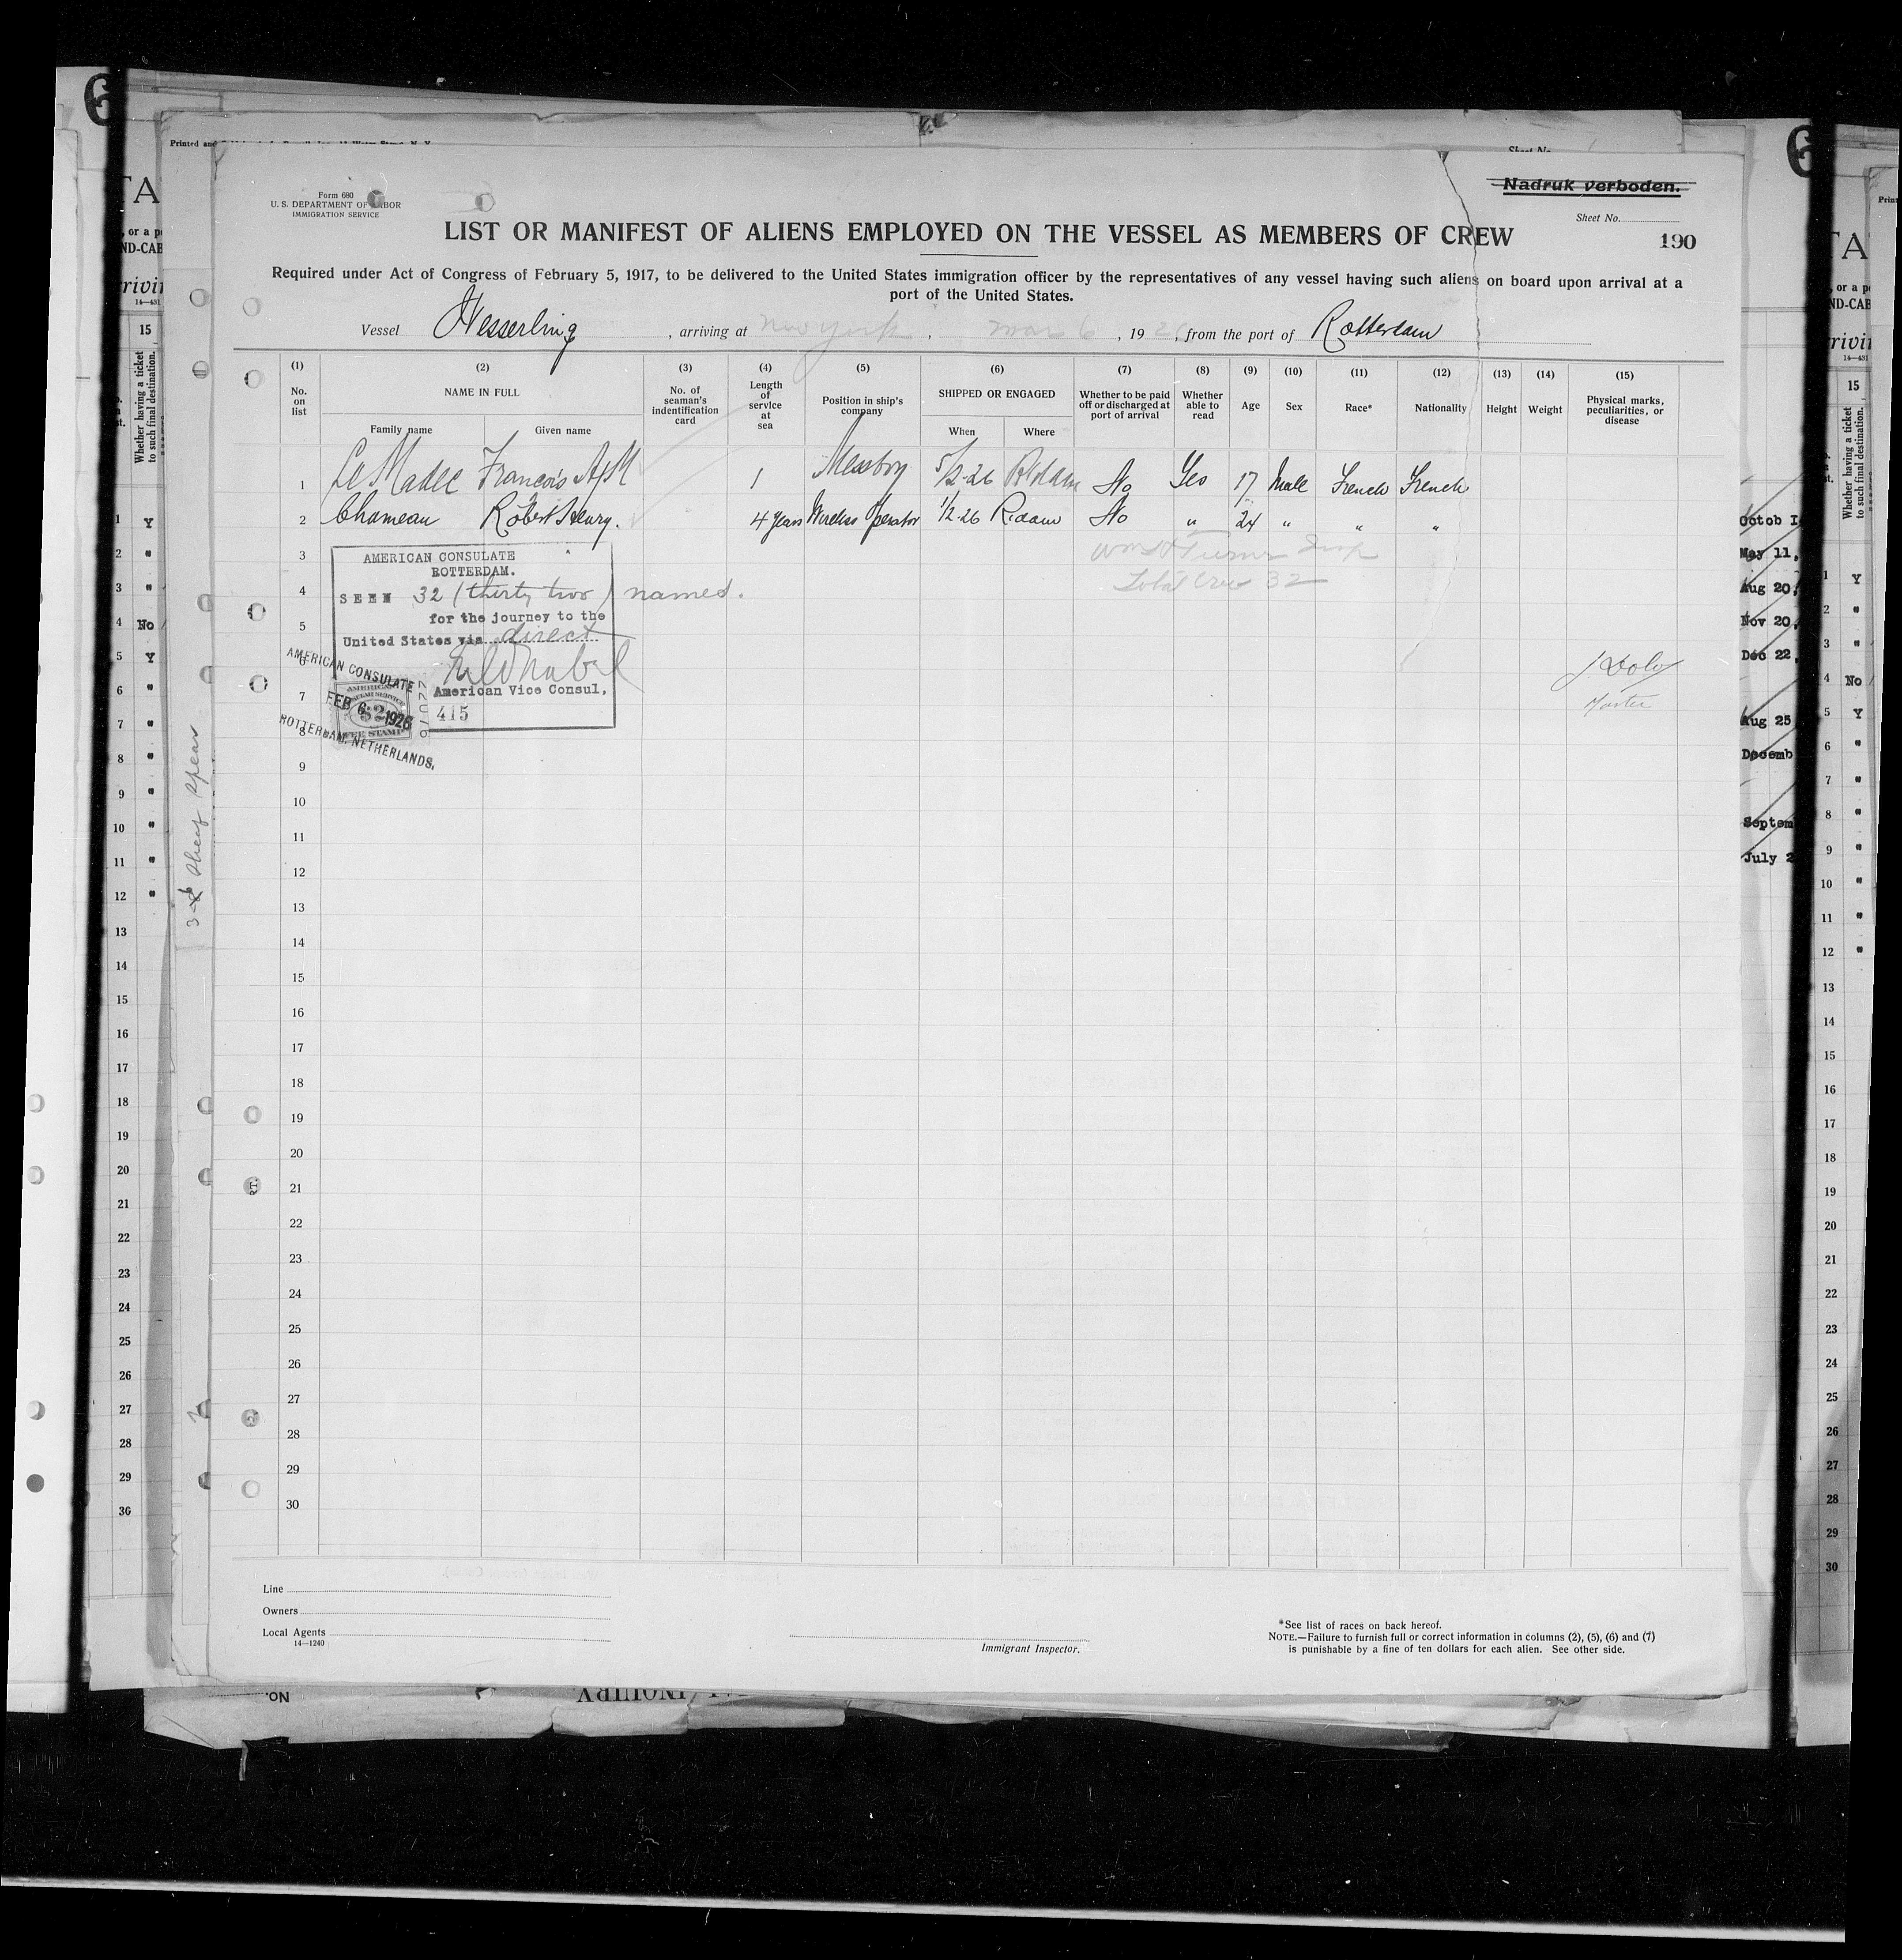 Form 680
U. S. DEPARTMENT OF LABOR
IMMIGRATION SERVICE
Nadruk verboden.
Sheet No.
190
LIST OR MANIFEST OF ALIENS EMPLOYED ON THE VESSEL AS MEMBERS OF CREW
Required under Act of Congress of February 5, 1917, to be delivered to the United States immigration officer by the representatives of any vessel having such aliens on board upon arrival at a
port of the United States.
Vessel Wesserling, arriving at New York, Mar 6, 1926, from the port of Rotterdam
(1) No. on list
(2) NAME IN FULL
Family name Given name
(3) No. of seaman's indentification card
(4) Length of service at sea
(5) Position in ship's company
(6) SHIPPED OR ENGAGED
When Where
(7) Whether to be paid off or discharged at port of arrival
(8) Whether able to read
(9) Age
(10) Sex
(11) Race*
(12) Nationality
(13) Height
(14) Weight
(15) Physical marks, peculiarities, or disease
1 Le Madec François 1 Messboy 5/2-26 No Yes 17 Male French French
2 Chameau Robert Henry. 4 Years Wireless Operator 1/2-26 R.dam No " 24 " " "
3
4
5
6
7
8
9
10
11
12
13
14
15
16
17
18
19
20
21
22
23
24
25
26
27
28
29
30
AMERICAN CONSULATE
ROTTERDAM.
SEEN 32 (thirty two) names.
for the journey to the
United States via direct
American Vice Consul,
415
AMERICAN CONSULATE
FEB 6 1926
ROTTERDAM, NETHERLANDS.
FEE STAMP
Total Crew 32
Master
Line
Owners
Local Agents
14—1240
Immigrant Inspector.
*See list of races on back hereof.
NOTE.—Failure to furnish full or correct information in columns (2), (5), (6) and (7)
is punishable by a fine of ten dollars for each alien. See other side.